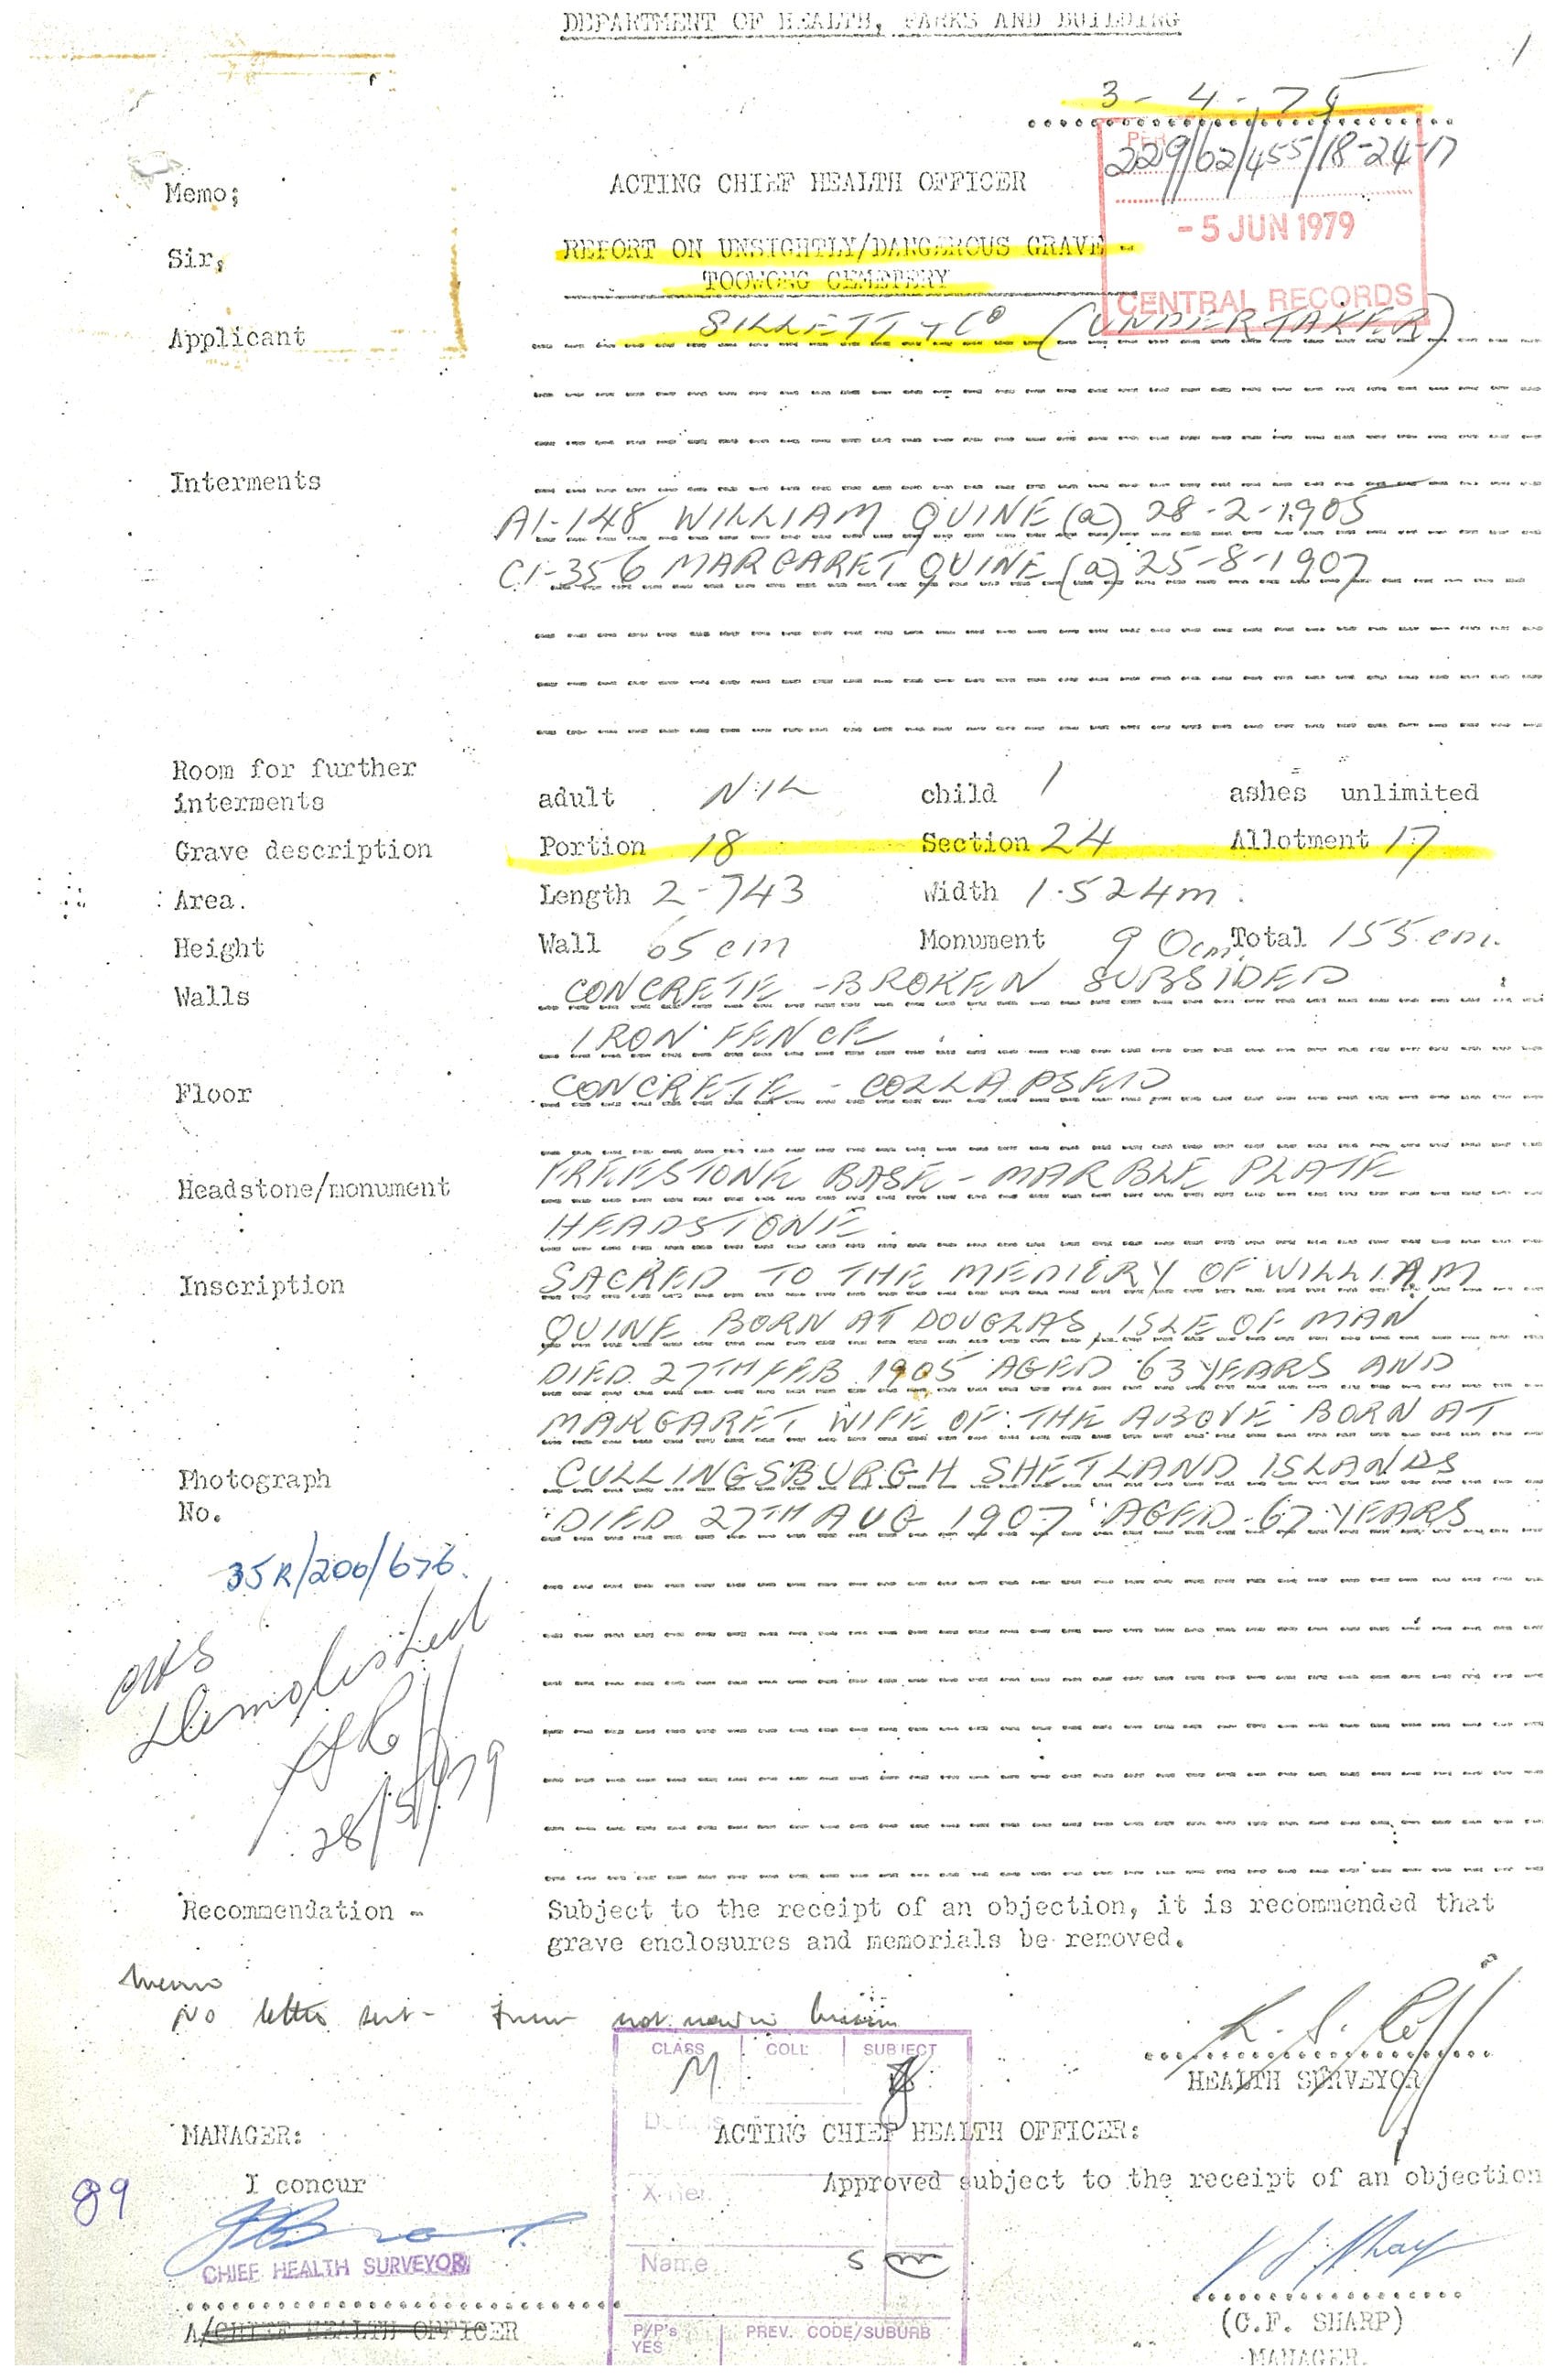 DEPARTMENT OF HEALTH, PARKS AND BUILDING
1
3-4-75
229/62/455/18-24-17
Memo;
ACTING CHIEF HEALTH OFFICER
-5 JUN 1979
Sir,
REPORT ON UNSIGHTLY/DANGEROUS GRAVE -
TOOWONG CEMETERY
CENTRAL RECORDS
Applicant SILLETT & CO (UNDERTAKER)
Interments
A1-148 WILLIAM QUINE (a) 28-2-1905
C1-356 MARGARET QUINE (a) 25-8-1907
Room for further
interments adult NIL child 1 ashes unlimited
Grave description Portion 18 Section 24 Allotment 17
Area. Length 2-743 Width 1.524m.
Height Wall 65cm Monument 90cm Total 155cm.
Walls CONCRETE - BROKEN SUBSIDED
IRON FENCE
Floor CONCRETE - COLLAPSED
Headstone/monument FREESTONE BASE - MARBLE PLATE
HEADSTONE.
Inscription SACRED TO THE MEMERY OF WILLIAM
QUINE BORN AT DOUGLAS, ISLE OF MAN
DIED 27TH FEB 1905 AGED 63 YEARS AND
MARGARET WIFE OF THE ABOVE BORN AT
Photograph CULLINGSBURGH SHETLAND ISLANDS
No. DIED 27TH AUG 1907 AGED 67 YEARS
35R/200/676.
Demolished
28/5/79
Recommendation - Subject to the receipt of an objection, it is recommended that
grave enclosures and memorials be removed.
Memo
No letter sent - not now in
HEALTH SURVEYOR
CLASS COLL SUBJECT
M
MANAGER: ACTING CHIEF HEALTH OFFICER:
I concur Approved subject to the receipt of an objection
89
X-Ref.
CHIEF HEALTH SURVEYOR
Name
A/CHIEF HEALTH OFFICER
(C.F. SHARP)
P/P's PREV. CODE/SUBURB
YES
MANAGER.